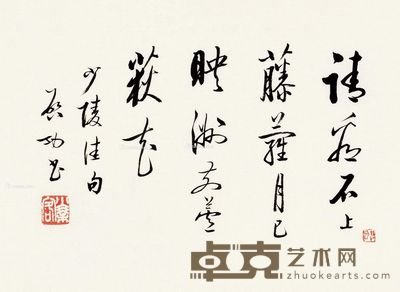 請看石上
藤蘿月已
映洲前蘆
荻花
少陵佳句
启功书
卓克艺术网
zhuokearts.com